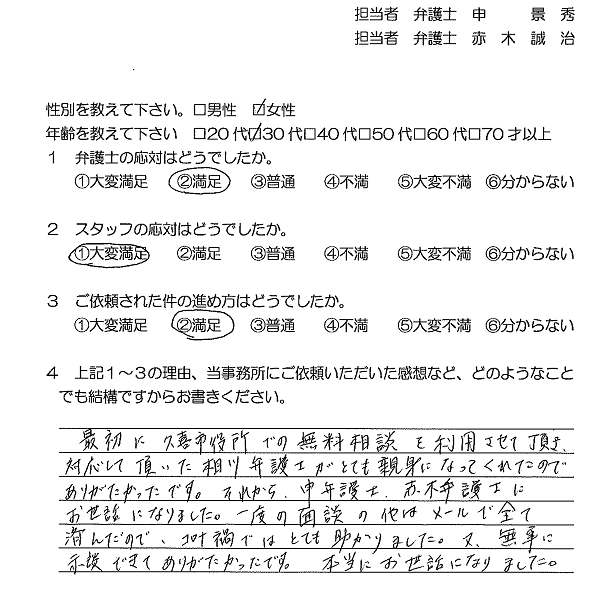 担当者 弁護士 申 景 秀
担当者 弁護士 赤 木 誠 治
性別を教えて下さい。□男性 ☑女性
年齢を教えて下さい □20代☑30代□40代□50代□60代□70才以上
1 弁護士の応対はどうでしたか。
①大変満足 ②満足 ③普通 ④不満 ⑤大変不満 ⑥分からない
2 スタッフの応対はどうでしたか。
①大変満足 ②満足 ③普通 ④不満 ⑤大変不満 ⑥分からない
3 ご依頼された件の進め方はどうでしたか。
①大変満足 ②満足 ③普通 ④不満 ⑤大変不満 ⑥分からない
4 上記1～3の理由、当事務所にご依頼いただいた感想など、どのようなこと
でも結構ですからお書きください。
最初に久喜市役所での無料相談を利用させて頂き、
対応して頂いた相川弁護士がとても親身になってくれたので
ありがたかったです。それから、申弁護士、赤木弁護士に
お世話になりました。一度の面談の他はメールで全て
済んだので、コロナ禍ではとても助かりました。又、無事に
示談できてありがたかったです。 本当にお世話になりました。